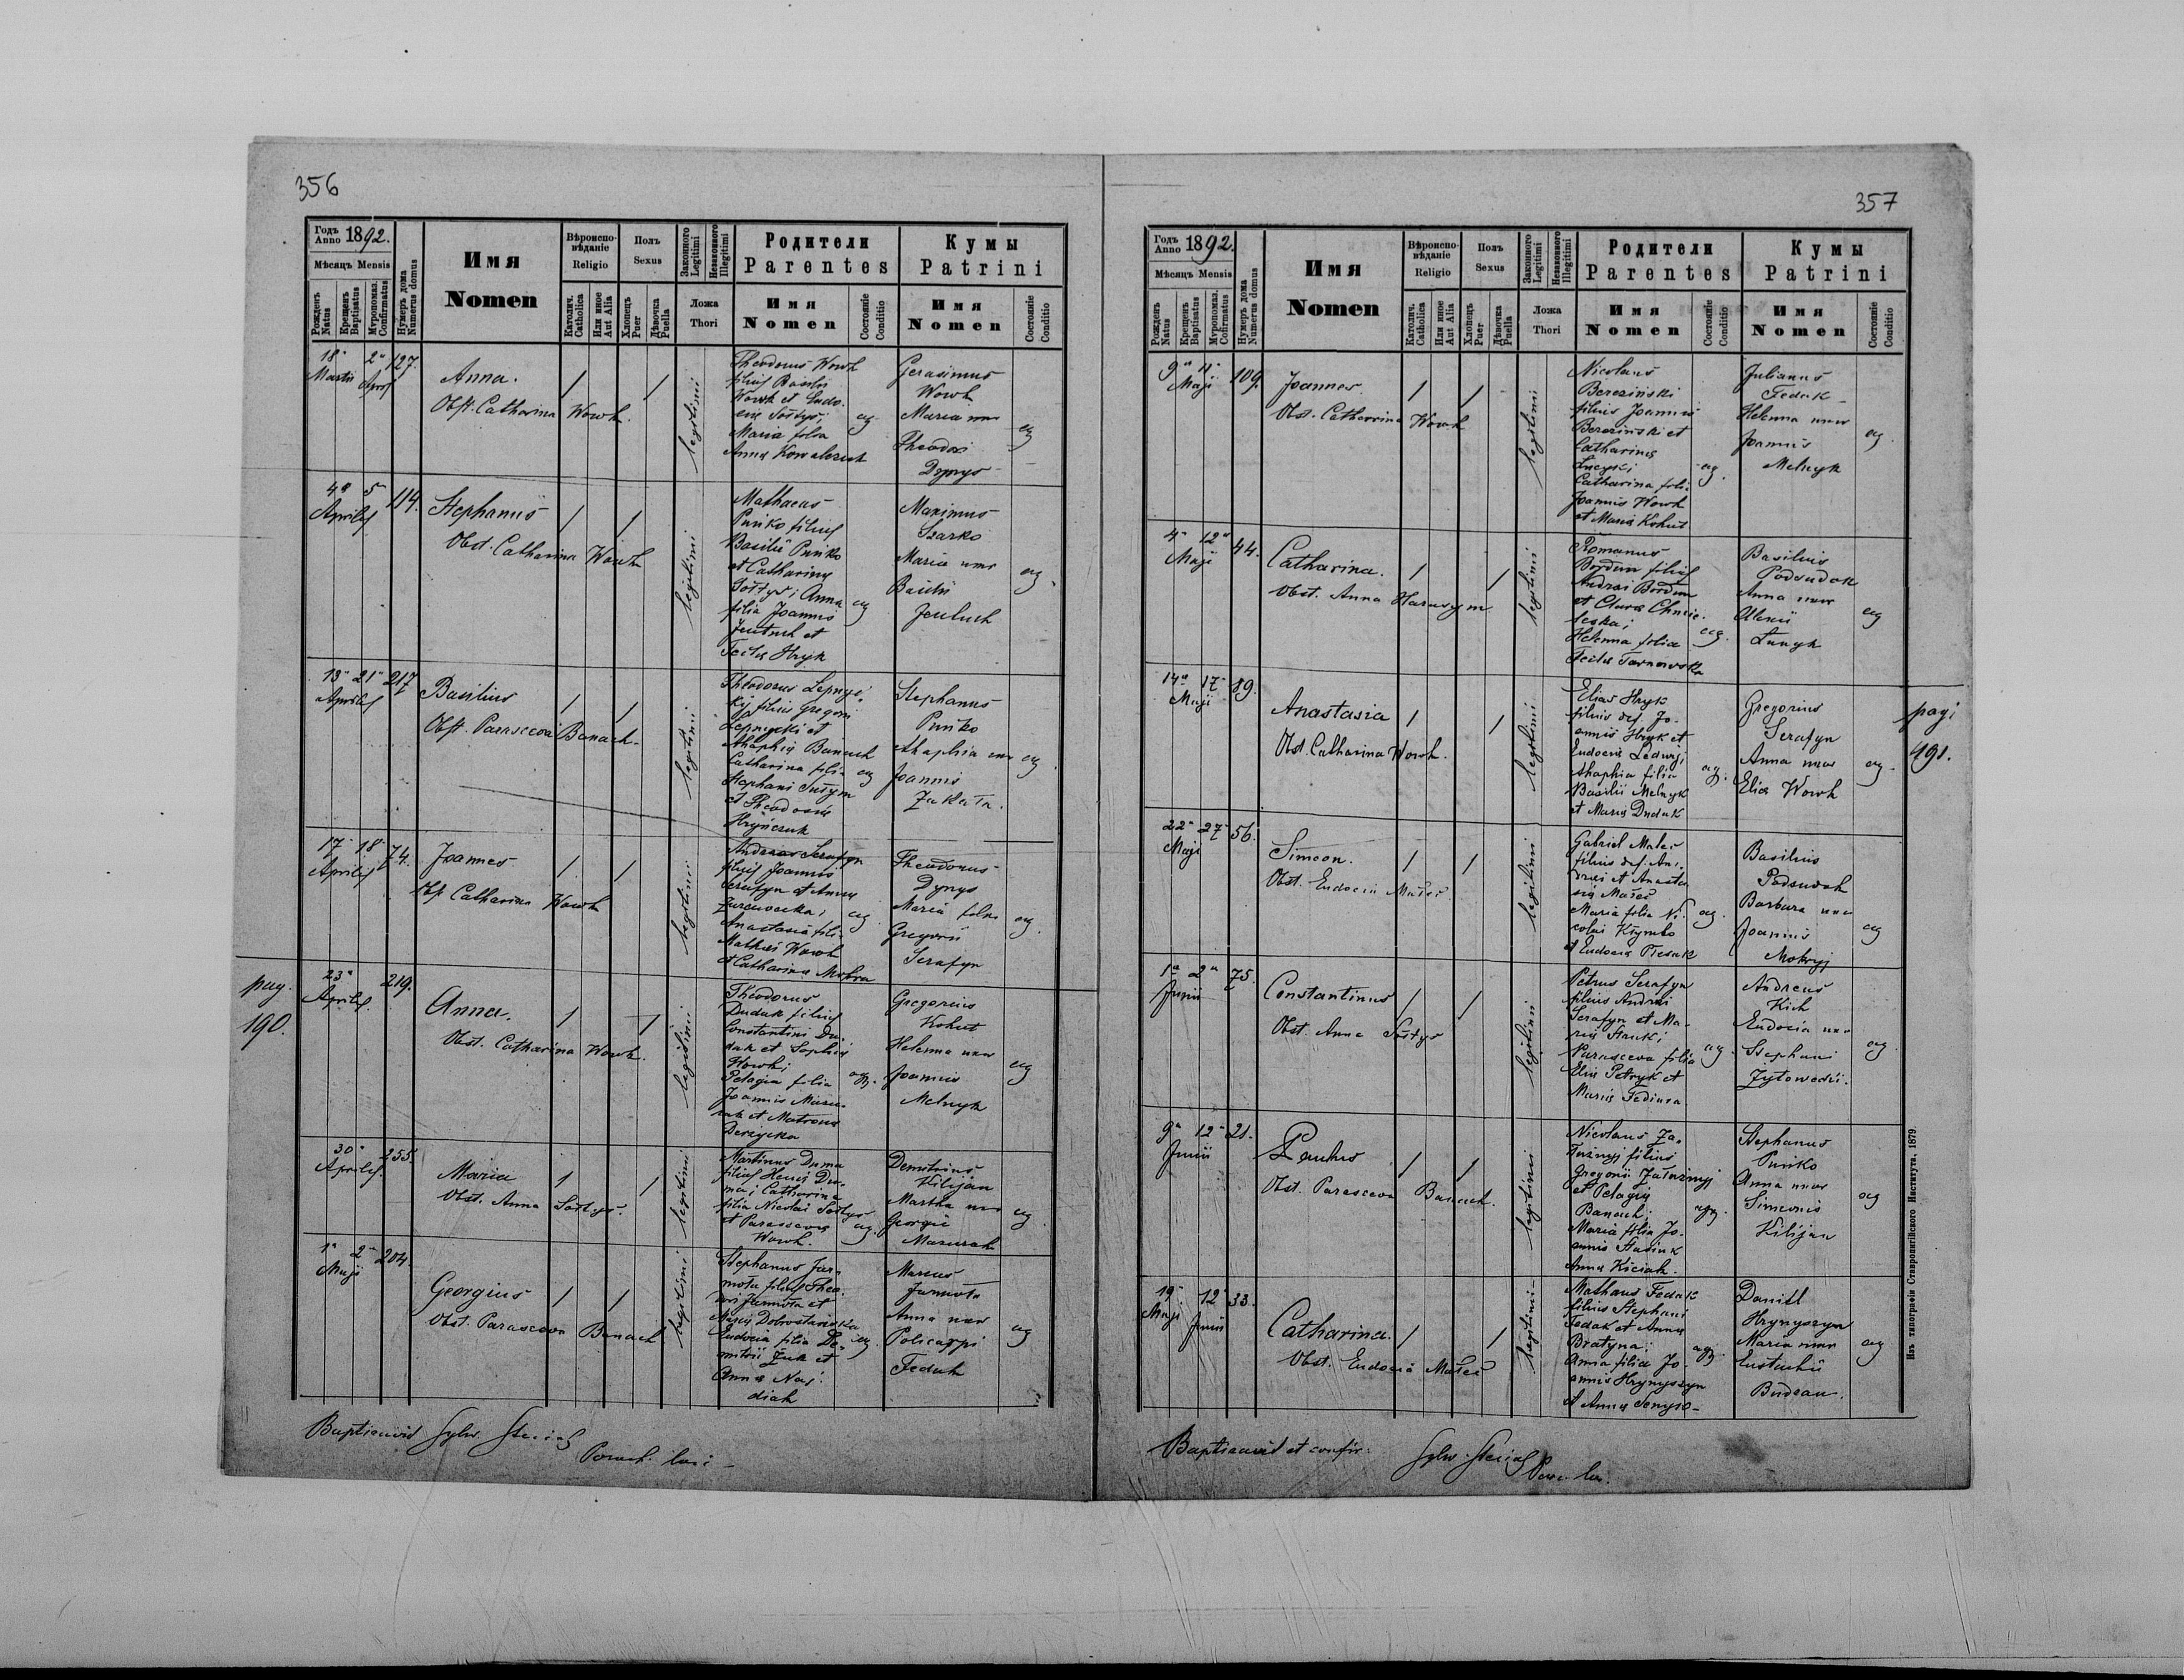 356
Годъ Anno 1892.
Мѣсяцъ Mensis
Рожденъ Natus
Крещенъ Baptisatus
Муропомаз. Confirmatus
Нумеръ дома Numerus domus
Имя
Nomen
Вѣроиспо-
вѣданіе
Religio
Католич. Catholica
Или иное Aut Alia
Полъ
Sexus
Хлопецъ Puer
Дѣвочка Puella
Законного Legitimi
Незаконного Illegitimi
Ложа
Thori
Родители
Parentes
Имя
Nomen
Состояніе Conditio
Кумы
Patrini
Имя
Nomen
Состояніе Conditio
18 2 127.
Martii April
Anna.
Obst. Catharina Wowk.
legitimi
Theodorus Wowk
filius Basilii
Wowk et Eudo-
ciæ Sołtys;
Maria filia
Anna Kowalczuk
ag
Gerasimus
Wowk
Maria uxor
Theodori
Dynys
ag
4 5 114.
Aprilis
Stephanus
Obst. Catharina Wowk
legitimi
Mathaeus
Puńko filius
Basilii Puńko
et Catharina
Sołtys; Anna
filia Joannis
et
Tecla Hryk
ag
Maximus
Szarko
Maria uxor
Basilii
ag.
13 21 217
Aprilis
Basilius
Obst. Parasceva Banach.
legitimi
Theodorus
filius Gregorii
et
Ahaphia Banach
Catharina filia
Stephani
et Theodosia
Hryńczuk
ag
Stephanus
Puńko
Ahaphia uxor
Joannis
Zakała.
ag
17 18 74.
Aprilis
Joannes
Obst. Catharina Wowk
legitimi
Andreas Serafyn
filius Joannis
Serafyn et Anna
Anastasia filia
Mathei Wowk
et Catharina Mokra
ag
Theodorus
Dynys
Maria filia
Gregorii
Serafyn
ag.
pag.
190.
23 219.
Aprilis.
Anna.
Obst. Catharina Wowk.
legitimi
Theodorus
Dudak filius
Constantini Du-
dak et Sophia
Wowk;
Pelagia filia
Joannis Mazu-
rak et Matrona
Derzycka
ag.
Gregorius
Kohut
Helenna uxor
Joannis
Melnyk
ag
30 255.
Aprilis.
Maria
Obst. Anna Sołtys.
legitimi
Martinus Duma
filius Du-
ma; Catharina
filia Nicolai Sołtys
et Parasceva
Wowk.
ag.
Demitrius
Kilijan
Martha uxor
Georgii
Mazurak
ag
1 2 204.
Maji
Georgius
Obst. Parasceva Banach.
legitimi
Stephanus Jar-
mota filius Theo-
dori Jarmota et
Eudocia filia De-
mitrii Żuk et
Anna
ag.
Marcus
Jarmota
Anna uxor
Policarpi
Fedak
ag
Baptisavit Sylw.
Paroch. loci
357
Годъ Anno 1892.
Мѣсяцъ Mensis
Рожденъ Natus
Крещенъ Baptisatus
Муропомаз. Confirmatus
Нумеръ дома Numerus domus
Имя
Nomen
Вѣроиспо-
вѣданіе
Religio
Католич. Catholica
Или иное Aut Alia
Полъ
Sexus
Хлопецъ Puer
Дѣвочка Puella
Законного Legitimi
Незаконного Illegitimi
Ложа
Thori
Родители
Parentes
Имя
Nomen
Состояніе Conditio
Кумы
Patrini
Имя
Nomen
Состояніе Conditio
9 11 109.
Maji
Joannes
Obst. Catharina Wowk
legitimi
Nicolaus
Bereziński
filius Joannis
Bereziński et
Catharina
Catharina filia
Joannis Wowk
et Maria Kohut
ag.
Julianus
Fedak
Helenna uxor
Joannis
Melnyk
ag.
4 12 44.
Maji
Catharina.
Obst. Anna Harasym
legitimi
Romanus
Bordun filius
Andrei Bordun
et Clara
Helenna filia
Tecla Tarnawska
ag.
Basilius
Podsudok
Anna uxor
Alexii
ag
14 17 89.
Maji
Anastasia
Obst. Catharina Wowk.
legitimi
Elias Hryk
filius def. Jo-
annis Hryk et
Eudocia
Ahaphia filia
Basilii Melnyk
et Maria Dudak
ag.
Gregorius
Serafyn
Anna uxor
Elia Wowk
ag.
pagi
191.
22 27 56.
Maji
Simeon.
Obst. Eudocia Małeć.
legitimi
Gabriel Małeć
filius def. An-
drei et Anasta-
sia Małeć
Maria filia Ni-
colai Kłymko
et Eudocia
ag.
Basilius
Podsudok
Barbara uxor
Joannis
Mokryj
ag
1 2 75.
Junii
Constantinus
Obst. Anna Sołtys
legitimi
Petrus Serafyn
filius Andrei
Serafyn et Ma-
ria
Parasceva filia
Elia Petryk et
Maria
ag
Andreas
Kich
Eudocia uxor
Stephani
ag
9 12 21.
Junii
Paulus
Obst. Parasceva Banach.
legitimi
Nicolaus Za-
łużnyj filius
Gregorii Załużnyj
et Pelagia
Banach;
Maria filia Jo-
annis Stasiuk
Anna
ag.
Stephanus
Puńko
Anna uxor
Simeonis
Kilijan
ag
19 12 33.
Maji Junii
Catharina.
Obst. Eudocia Małeć
legitimi
Mathaeus Fedak
filius Stephani
Fedak et Anna
Bratyna;
Anna filia Jo-
annis Hrynyszyn
et Anna
ag.
Daniel
Hrynyszyn
Maria uxor
Eustachii
ag
Baptisavit et confir. Sylw.
Изъ типографіи Ставропигійского Института, 1879.